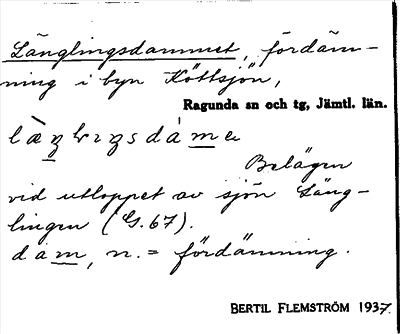 Länglingsdammet, fördäm-
ning i byn Köttsjön,
Ragunda sn och tg, Jämtl. län.
Belägen
vid utloppet av sjön Läng-
lingen (G. 67).
dam, n. = fördämning.
BERTIL FLEMSTRÖM 1937.